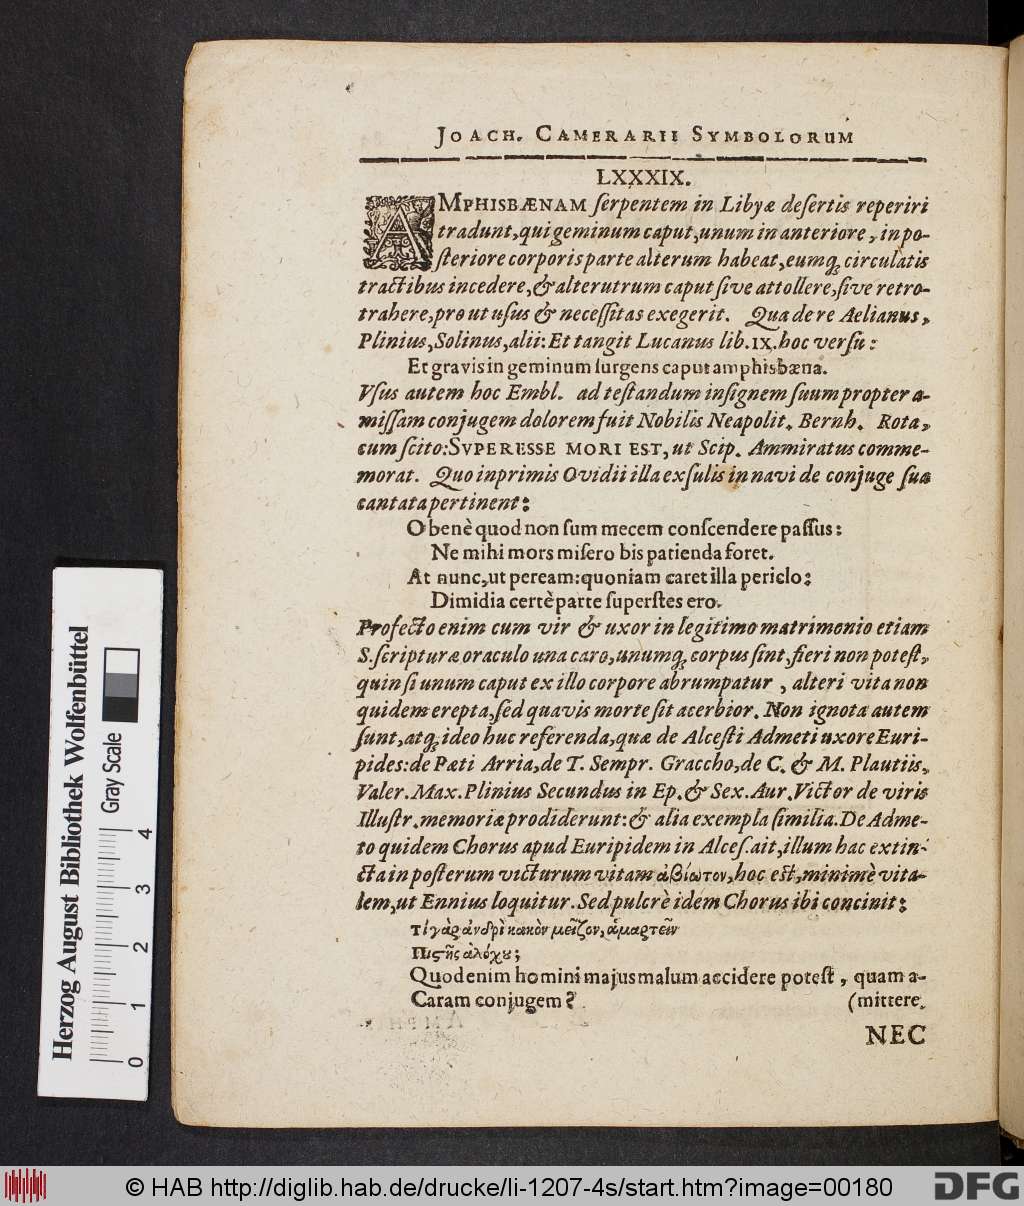 JOACH. CAMERARII SYMBOLORUM
LXXXIX.
AMPHISBÆNAM ſerpentem in Libyæ deſertis reperiri
tradunt, qui geminum caput, unum in anteriore, in po-
ſteriore corporis parte alterum habeat, eumq; circulatis
tractibus incedere, & alterutrum caput ſive attollere, ſive retro-
trahere, prout uſus & neceſſitas exegerit. Qua de re Aelianus,
Plinius, Solinus, alii: Et tangit Lucanus lib. IX. hoc verſu:
Et gravis in geminum ſurgens caput amphisbæna.
Vſus autem hoc Embl. ad teſtandum inſignem ſuum propter a-
miſſam conjugem dolorem fuit Nobilis Neapolit. Bernh. Rota,
cum ſcito: SVPERESSE MORI EST, ut Scip. Ammiratus comme-
morat. Quo inprimis Ovidii illa exſulis in navi de conjuge ſua
cantata pertinent:
O benè quod non ſum mecem conſcendere paſſus:
Ne mihi mors miſero bis patienda foret.
At nunc, ut peream: quoniam caret illa periclo:
Dimidia certè parte ſuperſtes ero.
Profecto enim cum vir & uxor in legitimo matrimonio etiam
S. ſcripturæ oraculo una caro, unumq; corpus ſint, fieri non poteſt,
quin ſi unum caput ex illo corpore abrumpatur, alteri vita non
quidem erepta, ſed quavis morte ſit acerbior. Non ignota autem
ſunt, atq; ideo huc referenda, quæ de Alceſti Admeti uxore Euri-
pides: de Pæti Arria, de T. Sempr. Graccho, de C. & M. Plautiis,
Valer. Max. Plinius Secundus in Ep. & Sex. Aur. Victor de viris
Illuſtr. memoriæ prodiderunt: & alia exempla ſimilia. De Adme-
to quidem Chorus apud Euripidem in Alceſ. ait, illum hac extin-
cta in poſterum victurum vitam ἀβίωτον, hoc eſt, minimè vita-
lem, ut Ennius loquitur. Sed pulcrè idem Chorus ibi concinit:
τί γὰρ ἀνδρὶ κακὸν μεῖζον, ἁμαρτεῖν
Πιστῆς ἀλόχου;
Quod enim homini majus malum accidere poteſt, quam a-
Caram conjugem? (mittere.
NEC
Herzog August Bibliothek Wolfenbüttel
Gray Scale
0 1 2 3 4
© HAB http://diglib.hab.de/drucke/li-1207-4s/start.htm?image=00180
DFG